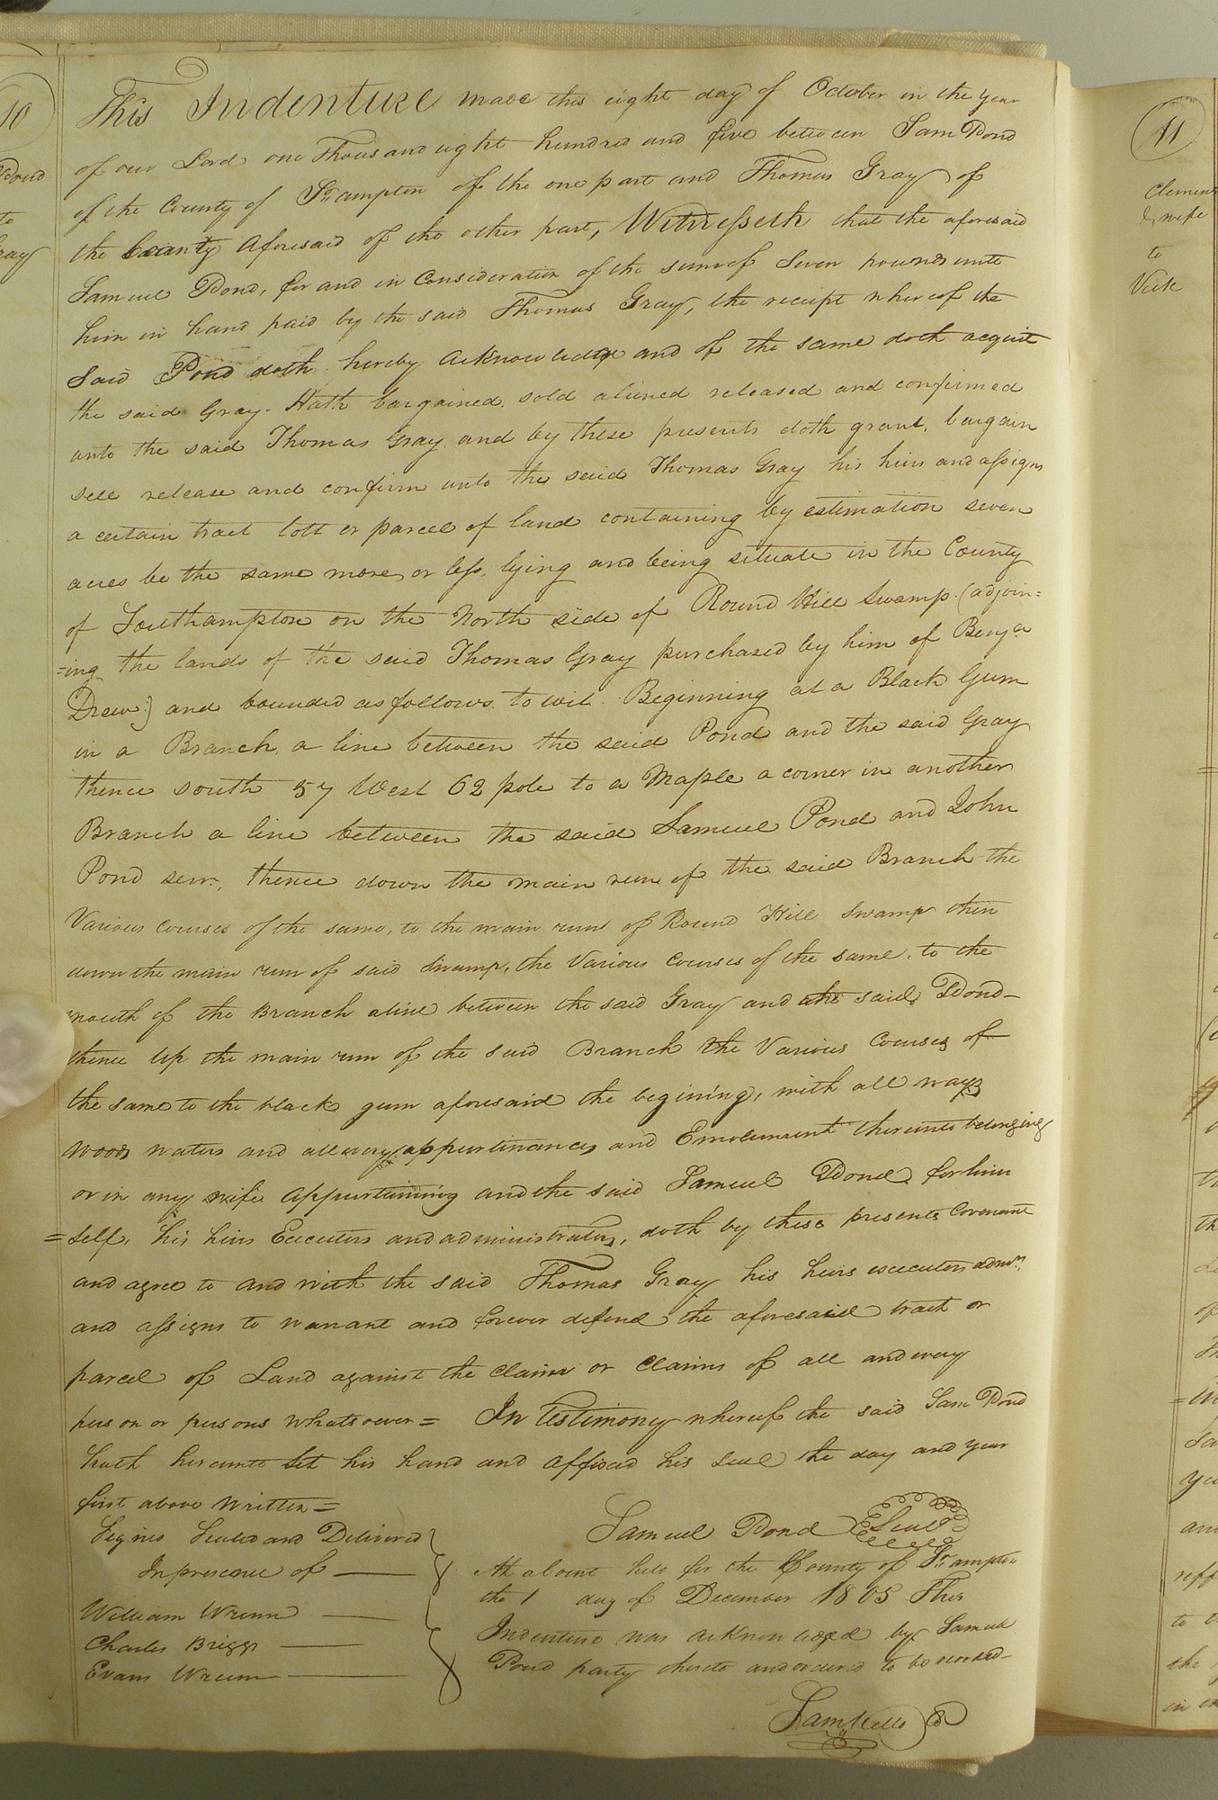 10
Pond
to
Gray
This Indenture made this eight day of October in the year
of our Lord one Thousand eight hundred and five between Sam Pond
of the County of So.ampton of the one part and Thomas Gray of
the County Aforesaid of the other part, Witnesseth that the aforesaid
Samuel Pond, for and in Consideration of the sum of Seven pounds unto
him in hand paid by the said Thomas Gray, the receipt whereof the
Said Pond doth hereby Acknowledge and of the same doth acquit
the said Gray. Hath bargained sold aliened released and confirmed
unto the said Thomas Gray and by these presents doth grant, bargain
sell release and confirm unto the said Thomas Gray his heirs and assigns
a certain tract lott or parcel of land containing by estimation seven
acres be the same more or less, lying and being situate in the County
of Southampton on the North side of Round Hill Swamp (adjoin=
=ing the lands of the said Thomas Gray purchased by him of Benja
Drew) and bounded as follows to wit. Beginning at a Black Gum
in a Branch, a line between the said Pond and the said Gray
thence south 57 West 62 pole to a Maple a corner in another
Branch a line between the said Samuel Pond and John
Pond senr., thence down the main run of the said Branch the
Various Courses of the same, to the main run of Round Hill Swamp then
down the main run of said Swamp, the Various Courses of the same, to the
mouth of the Branch aline between the said Gray and the said Pond—
thence Up the main run of the said Branch the Various Courses of
the same to the black gum aforesaid the begining, with all ways
woods waters and all every appurtinances and Emolument thereunto belonging
or in any wise Appurtaining and the said Samuel Pond for him
=self, his heirs Executors and administrators, doth by these presents Covenant
and agree to and with the said Thomas Gray his heirs executors admrs.
and assigns to warrant and forever defend the aforesaid tract or
parcel of Land against the claim or claims of all and every
person or persons whatsoever= In Testimony whereof the said Sam Pond
hath hereunto Set his hand and affixed his seal the day and year
first above Written=
Signed Sealed and Delivered
In presence of —
William Wrenn —
Charles Briggs —
Evans Wrenn —
Samuel Pond Seal
At a Court held for the County of So.ampton
the 1 day of December 1805 This
Indenture was acknowledged by Samuel
Pond party thereto and ordered to be recorded—
Sam Kello
11
Clements
& wife
to
Vick